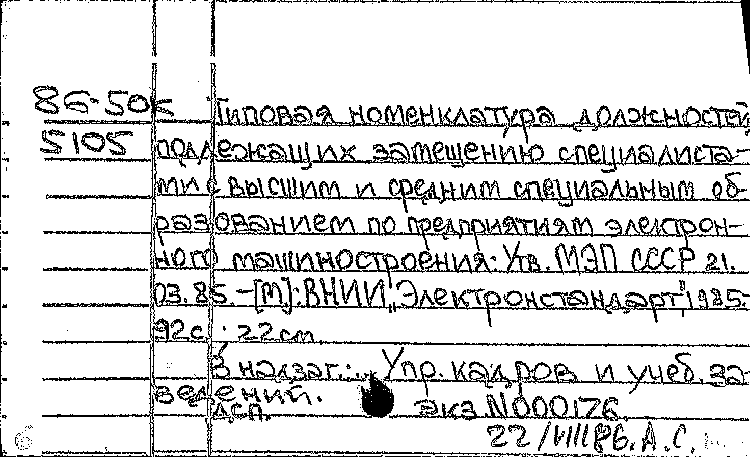 86-50к Типовая номенклатура должностей
5105 подлежащих замещению специалиста-
ми с высшим и средним специальным об-
разованием по предприятиям электрон-
ного машиностроения: Утв. МЭП СССР 21.
03.85.-[М]: ВНИИ "Электронстандарт" 1985.-
92с.; 22см.
В надзаг.:... Упр. кадров и учеб. за-
ведений.
ДСП. Экз N000176.
22/VIII86. А.С.
6